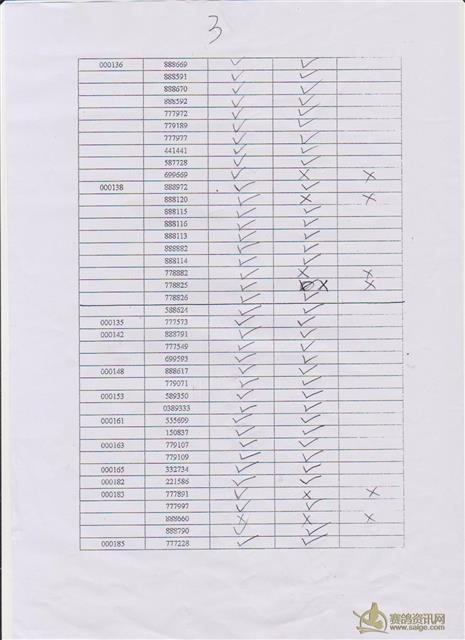 3
000136 888669 ✓ ✓
888591 ✓ ✓
888670 ✓ ✓
888592 ✓ ✓
777972 ✓ ✓
779189 ✓ ✓
777977 ✓ ✓
441441 ✓ ✓
587728 ✓ ✓
699669 ✓ × ×
000138 888972 ✓ ✓
888120 ✓ × ×
888115 ✓ ✓
888116 ✓ ✓
888113 ✓ ✓
888882 ✓ ✓
888114 ✓ ✓
778882 ✓ × ×
778825 ✓ × ×
778826 ✓ ✓
588624 ✓ ✓
000135 777573 ✓ ✓
000142 888791 ✓ ✓
777549 ✓ ✓
699593 ✓ ✓
000148 888617 ✓ ✓
779071 ✓ ✓
000153 589350 ✓ ✓
0389333 ✓ ✓
000161 555699 ✓ ✓
150837 ✓ ✓
000163 779107 ✓ ✓
779109 ✓ ✓
000165 332734 ✓ ✓
000182 221586 ✓ ✓
000183 777891 ✓ × ×
777997 ✓ ✓
888660 × × ×
888790 ✓ ✓
000185 777228 ✓ ✓
赛鸽资讯网
www.saige.com